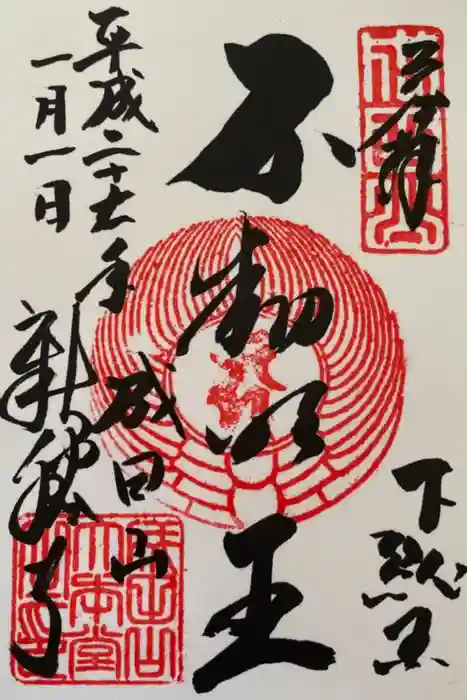 奉拝
下総国
不動明王
成田山
新勝寺
平成二十六年
一月一日